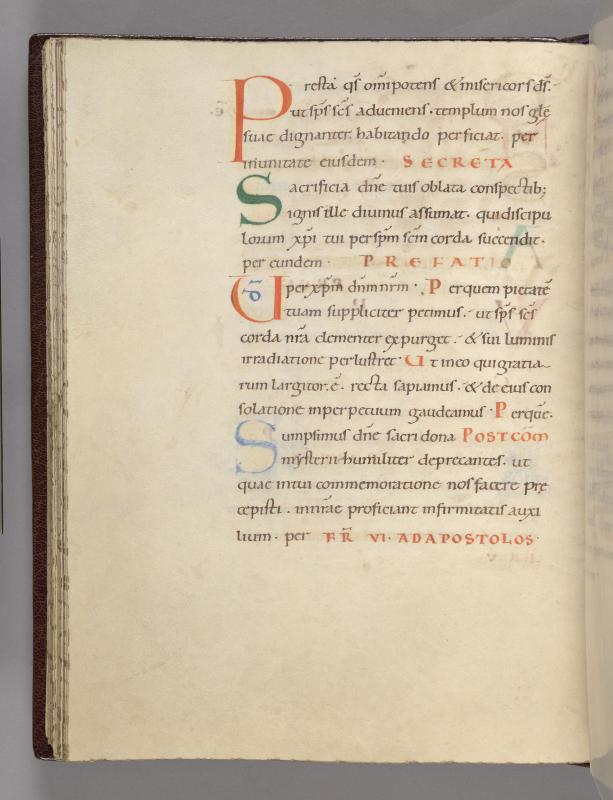 Presta qs omipotens & misericors ds.
ut sps scs adveniens. templum nos glę
suae dignanter habitando perficiat. per
in unitate eiusdem. SECRETA
Sacrificia dne tuis oblata conspectib;
ignis ille divinus assumat. qui discipu
lorum xpi tui per spm scm corda succendit.
per eundem. PREFATIO
UD per xpm dnm nrm. Per quem pietatē
tuam suppliciter petimus. ut sps scs
corda nra clementer expurget. & sui luminis
irradiatione perlustret. Ut in eo qui gratia
rum largitor. ē. recta sapiamus. & de eius con
solatione in perpetuum gaudeamus. Per quē.
Sumpsimus dne sacri dona POSTCOM
mysterii humiliter deprecantes. ut
quae in tui commemoratione nos facere pre
cepisti. in nrae proficiant infirmitatis auxi
lium. per FR VI. AD APOSTOLOS.